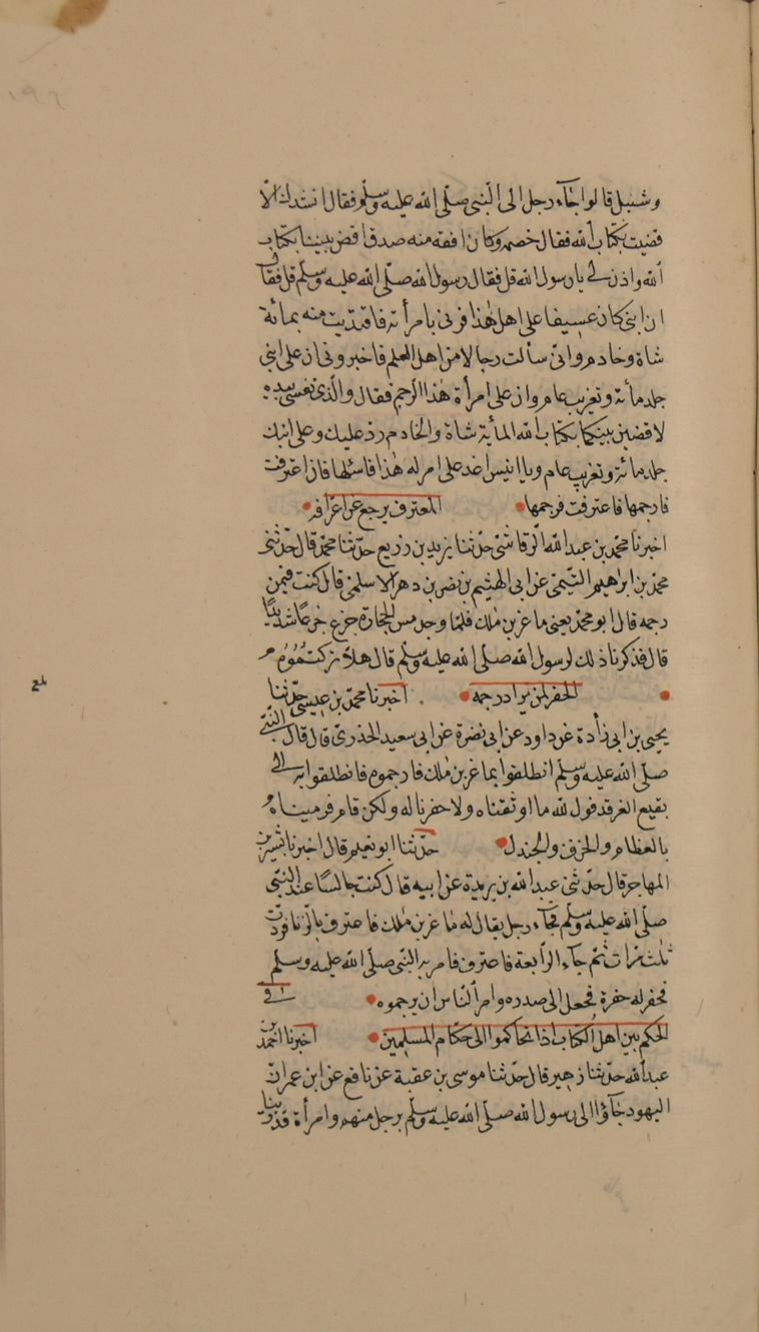 ١٩٦
وشبل قالوا جآء رجل الى النبى صلّى الله عليه وسلم فقال انشدك الّا
قضيت بكتاب الله فقال خصمه وكان افقه منه صدق اقض بيننا بكتاب
الله واذن لى يا رسول الله قل فقال رسول الله صلّى الله عليه وسلم قل فقال
ان ابنى كان عسيفا على اهل هٰذا فزنى بامرأته فافتديت منه بمائة
شاة وخادم وانى سألت رجالا من اهل العلم فاخبرونى ان على ابنى
جلد مأئة وتغريب عام وان على امرأة هٰذا الرجم فقال والّذى نفسى بيده
لاقضين بينكما بكتاب الله المائة شاة والخادم رد عليك وعلى ابنك
جلد مائة وتغريب عام ويا انيس اغد على امراة هٰذا فاسئلها فان اعترفت
فارجمها فاعترفت فرجمها المعترف يرجع عن اعترافه
اخبرنا محمد بن عبد الله الرقاشى حدّثنا يزيد بن زريع حدّثنا محمّد قال حدّثنى
محمّد بن ابرٰهيم التّيمى عن ابى الهثيم بن نصر بن دهر الاسلمى قال كنت فيمن
رجمه قال ابو محمّد يعنى ماعز بن مٰلك فلمّا وجد مس الحجارة جزع جزعًا شديدًا
قال فذكرنا ذلك لرسول الله صلى الله عليه وسلم قال هلّا تركتموه
الحفر لمن يراد رجمه اخبرنا محمّد بن عيسى حدّثنا
يحيى بن ابى زأدة عن داود عن ابى نضرة عن ابى سعيد الخدرى قال قال النّبى
صلّى الله عليه وسلم انطلقوا بماعز بن مٰلك فارجموه فانطلقوا به الى
بقيع الغرقد فول لله ما اوثقناه ولا حفرنا له ولكن قام فرميناه
بالعظام والخزف والجندل حدّثنا ابو نعيم قال اخبرنا بشير بن
المهاجر قال حدّثنى عبد الله بن بريدة عن ابيه قال كنت جالسًا عند النبى
صلّى الله عليه وسلم فجآءه رجل يقال له ماعز بن مٰلك فاعترف بالزنا فرده
ثلث مرات ثم جآء الرابعة فاعترف فامر به النّبى صلّى الله عليه وسلم
فحفر له حفرة فجعل الى صدره وامر النّاس ان يرجموه فى
الحكم بين اهل الكتاب اذا تحاكموا الى حكام المسلمين اخبرنا احمد بن
عبد الله حدّثنا زهير قال حدّثنا موسى بن عقبة عن نافع عن ابن عمر ان
اليهود جآؤا الى رسول الله صلّى الله عليه وسلم برجل منهم وامرأة قد زنيا